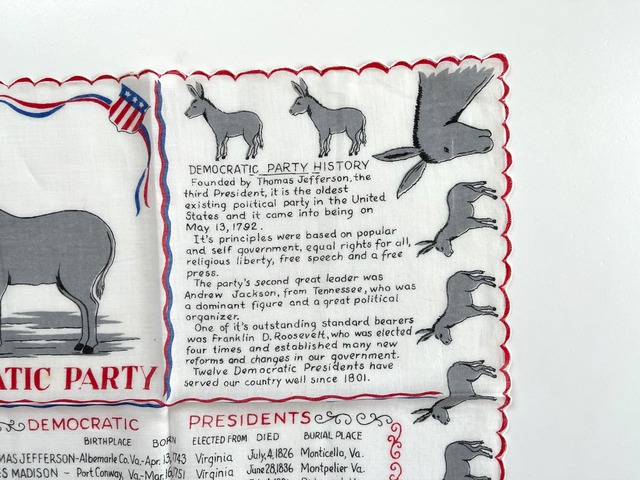 DEMOCRATIC PARTY HISTORY
Founded by Thomas Jefferson, the
third President, it is the oldest
existing political party in the United
States and it came into being on
May 13, 1792.
It's principles were based on popular
and self government, equal rights for all,
religious liberty, free speech and a free
press.
The party's second great leader was
Andrew Jackson, from Tennessee, who was
a dominant figure and a great political
organizer.
One of it's outstanding standard bearers
was Franklin D. Roosevelt, who was elected
four times and established many new
reforms and changes in our government.
Twelve Democratic Presidents have
served our country well since 1801.
ATIC PARTY
DEMOCRATIC PRESIDENTS
BIRTHPLACE BORN ELECTED FROM DIED BURIAL PLACE
MAS JEFFERSON - Albemarle Co. Va. - Apr. 13, 1743 Virginia July, 4, 1826 Monticello, Va.
ES MADISON - Port Conway, Va. - Mar. 16, 1751 Virginia June 28, 1836 Montpelier Va.